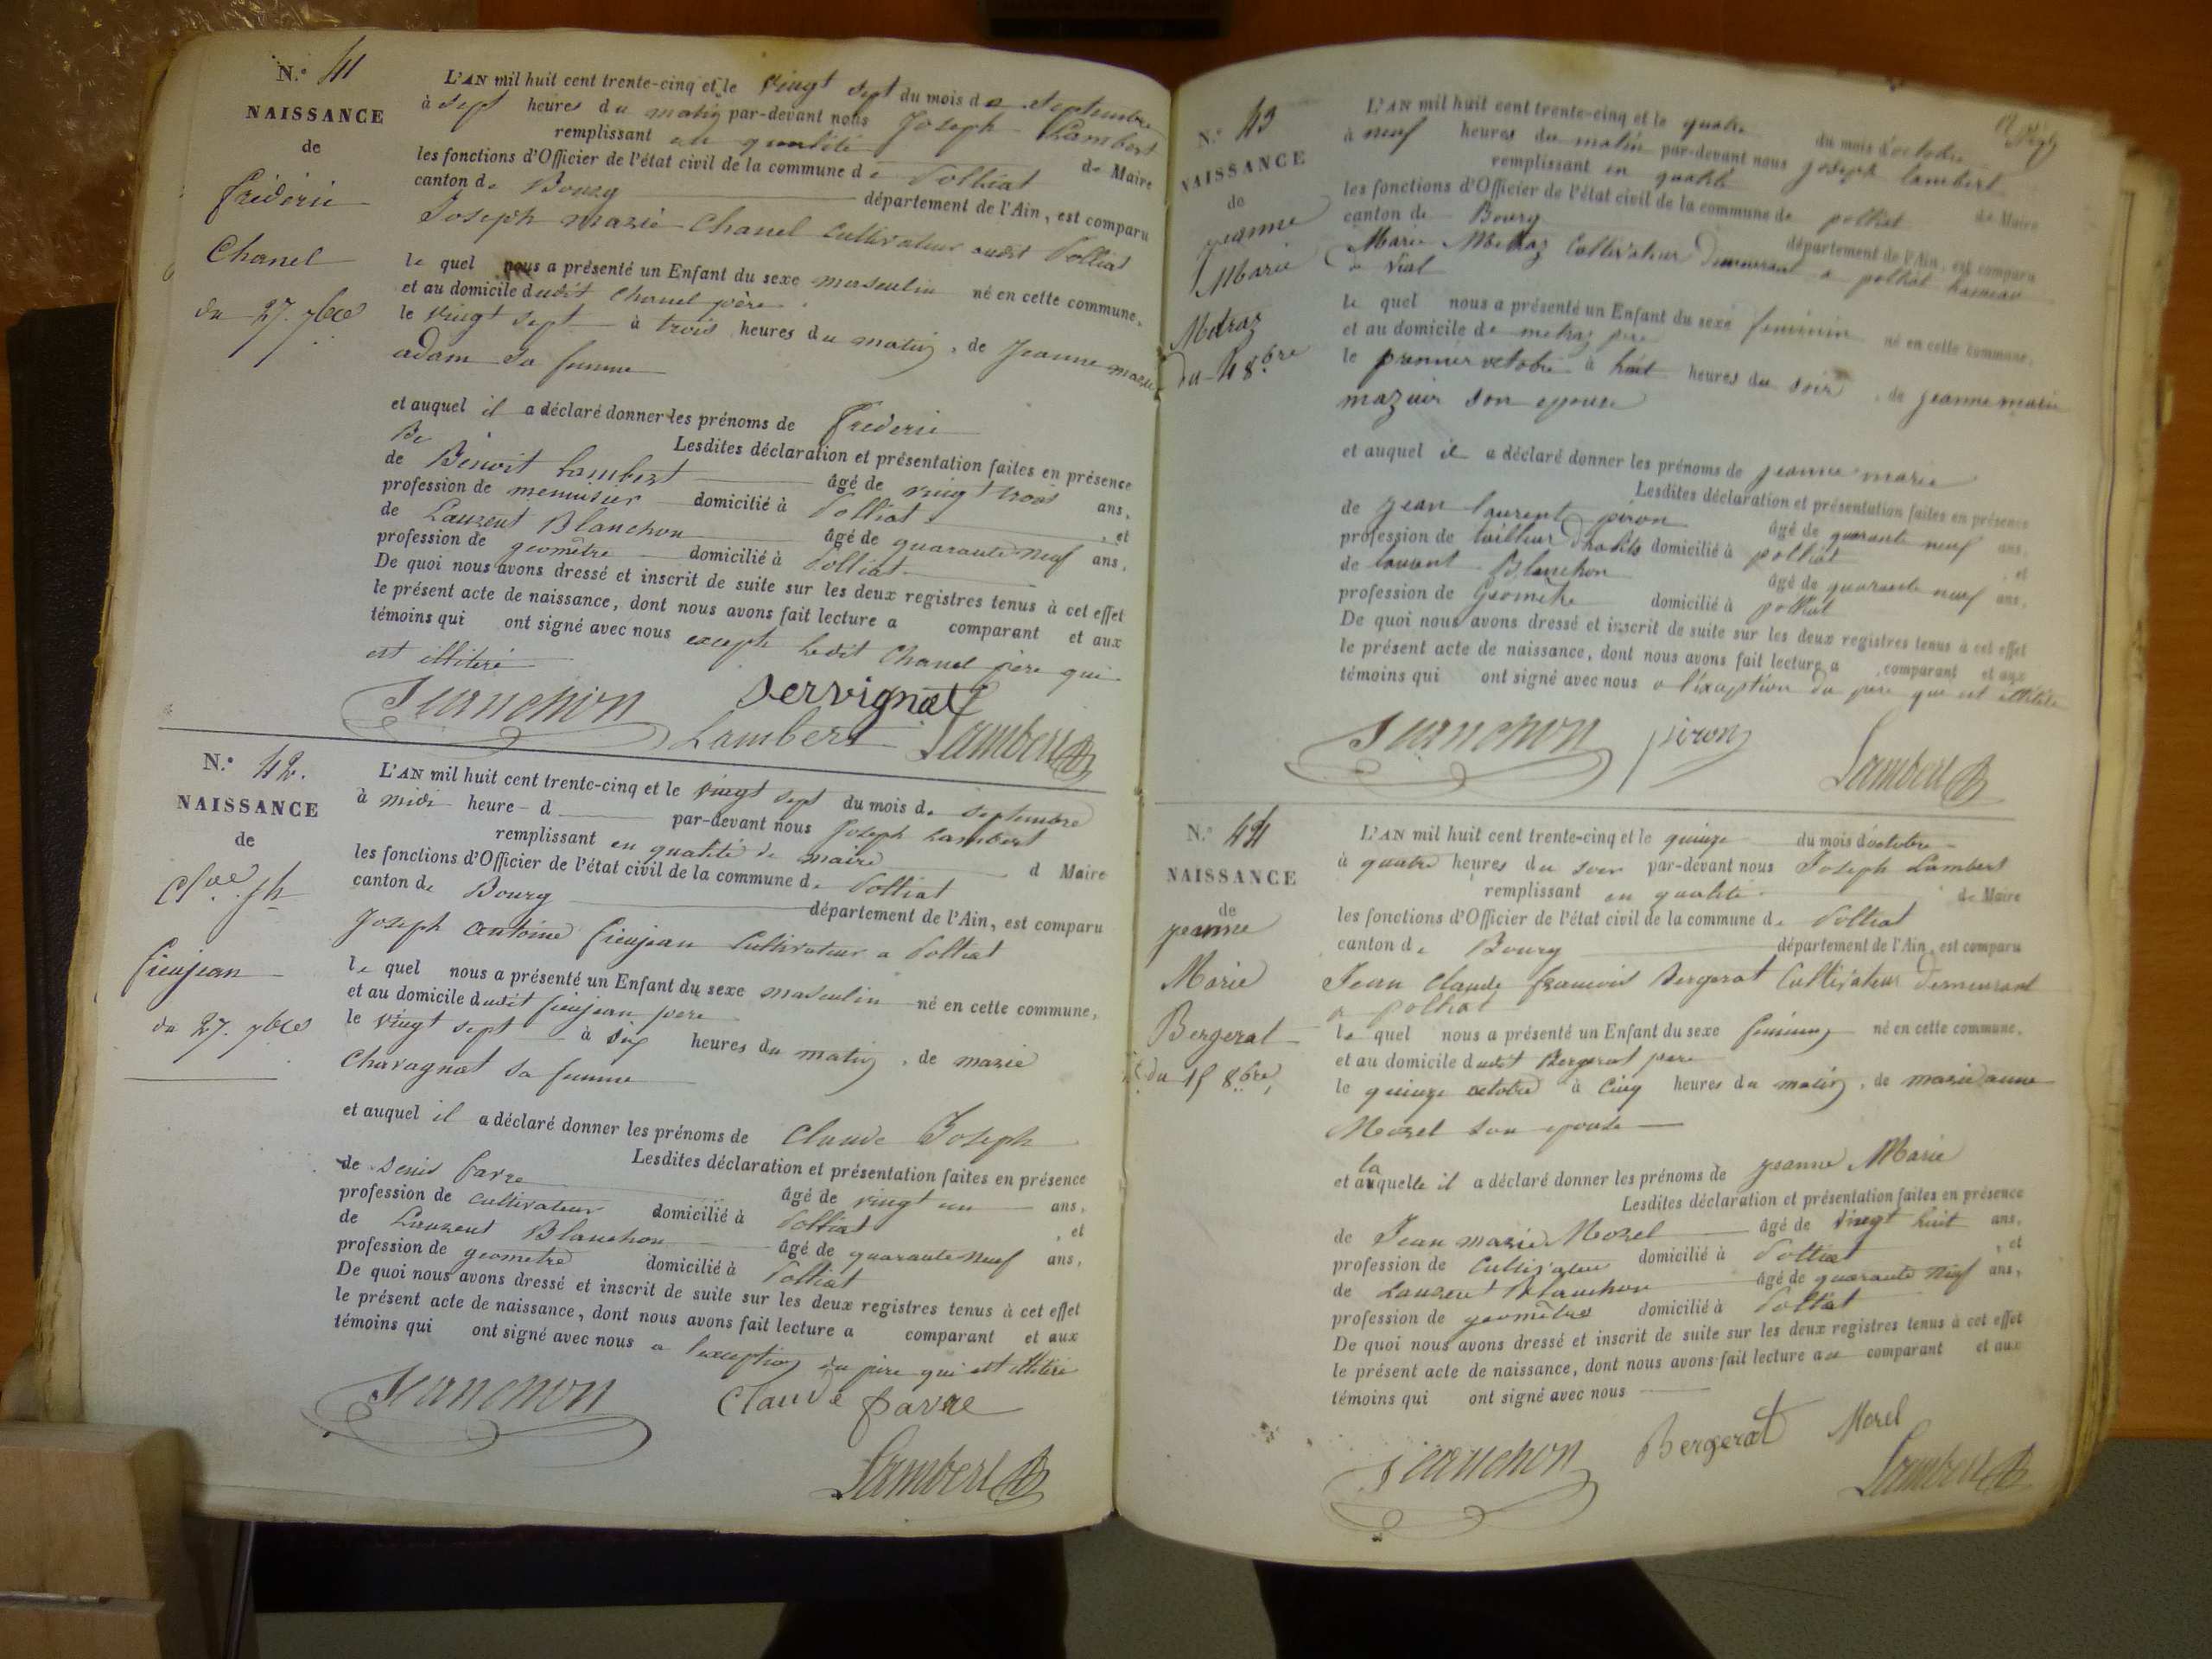 N.° 41
NAISSANCE
de
frédéric
Chanel
du 27. 7bre
L'AN mil huit cent trente-cinq et le vingt sept du mois de septembre
à sept heures du matin par-devant nous Joseph Lambert
remplissant en qualité de Maire
les fonctions d'Officier de l'état civil de la commune de Polliat
canton de Bourg département de l'Ain, est comparu
Joseph marie Chanel cultivateur audit Polliat
le quel nous a présenté un Enfant du sexe masculin né en cette commune,
et au domicile dudit Chanel père
le vingt sept à trois heures du matin, de Jeanne marie
adam sa femme
et auquel il a déclaré donner les prénoms de frederic
Lesdites déclaration et présentation faites en présence
Be
de Benoit Lambert âgé de vingt trois ans,
profession de menuisier domicilié à Polliat, et
de Laurent Blanchon âgé de quarante neuf ans,
profession de geomètre domicilié à Polliat
De quoi nous avons dressé et inscrit de suite sur les deux registres tenus à cet effet
le présent acte de naissance, dont nous avons fait lecture a comparant et aux
témoins qui ont signé avec nous excepté ledit Chanel père qui
est illitéré
servignat
Lambert Lambert
N.° 42.
NAISSANCE
de
Cl.de Jh
fieujean
du 27. 7bre
L'AN mil huit cent trente-cinq et le vingt sept du mois de septembre
à midi heure d par-devant nous Joseph Lambert
remplissant en qualité de maire d Maire
les fonctions d'Officier de l'état civil de la commune de Polliat
canton de Bourg département de l'Ain, est comparu
Joseph antoine fieujean cultivateur a Polliat
le quel nous a présenté un Enfant du sexe masculin né en cette commune,
et au domicile dudit fieujean pere
le vingt sept à six heures du matin, de marie
Chavagnat sa femme
et auquel il a déclaré donner les prénoms de Claude Joseph
Lesdites déclaration et présentation faites en présence
de denis favre âgé de vingt un ans,
profession de cultivateur domicilié à Polliat, et
de Laurent Blanchon âgé de quarante neuf ans,
profession de geometre domicilié à Polliat
De quoi nous avons dressé et inscrit de suite sur les deux registres tenus à cet effet
le présent acte de naissance, dont nous avons fait lecture a comparant et aux
témoins qui ont signé avec nous a lexception du père qui est illitéré
Claude favre
Lambert
N.° 43
NAISSANCE
de
jeanne
Marie
Metraz
du 4 8.bre
L'AN mil huit cent trente-cinq et le quatre du mois d'octobre
à neuf heures du matin par-devant nous joseph lambert
remplissant en qualité de Maire
les fonctions d'Officier de l'état civil de la commune de polliat
canton de Bourg département de l'Ain, est comparu
Marie Metraz Cultivateur demeurant a polliat hameau
a Vial
le quel nous a présenté un Enfant du sexe feminin né en cette commune,
et au domicile de metraz pere
le premier octobre à huit heures du soir, de jeanne marie
mazuir son epouse
et auquel il a déclaré donner les prénoms de jeanne marie
Lesdites déclaration et présentation faites en présence
de jean laurent piron âgé de quarante neuf ans,
profession de tailleur d'habits domicilié à polliat, et
de laurent Blanchon âgé de quarante neuf ans,
profession de Geometre domicilié à polliat
De quoi nous avons dressé et inscrit de suite sur les deux registres tenus à cet effet
le présent acte de naissance, dont nous avons fait lecture a comparant et aux
témoins qui ont signé avec nous a l'exception du pere qui est illitéré
piron
Lambert
N.° 44
NAISSANCE
de
jeanne
Marie
Bergerat
du 15 8.bre
L'AN mil huit cent trente-cinq et le quinze du mois d'octobre
à quatre heures du soir par-devant nous Joseph Lambert
remplissant en qualité de Maire
les fonctions d'Officier de l'état civil de la commune de Polliat
canton de Bourg département de l'Ain, est comparu
Jean claude francois Bergerat Cultivateur demeurant
a polliat
le quel nous a présenté un Enfant du sexe feminin né en cette commune,
et au domicile dudit Bergerat pere
le quinze octobre à cinq heures du matin, de marie anne
Morel son epouse
et a la quelle il a déclaré donner les prénoms de jeanne Marie
Lesdites déclaration et présentation faites en présence
de Jean marie Morel âgé de vingt huit ans,
profession de Cultivateur domicilié à Polliat, et
de Laurent Blanchon âgé de quarante neuf ans,
profession de geomètre domicilié à Polliat
De quoi nous avons dressé et inscrit de suite sur les deux registres tenus à cet effet
le présent acte de naissance, dont nous avons fait lecture au comparant et aux
témoins qui ont signé avec nous
Bergerat Morel
Lambert